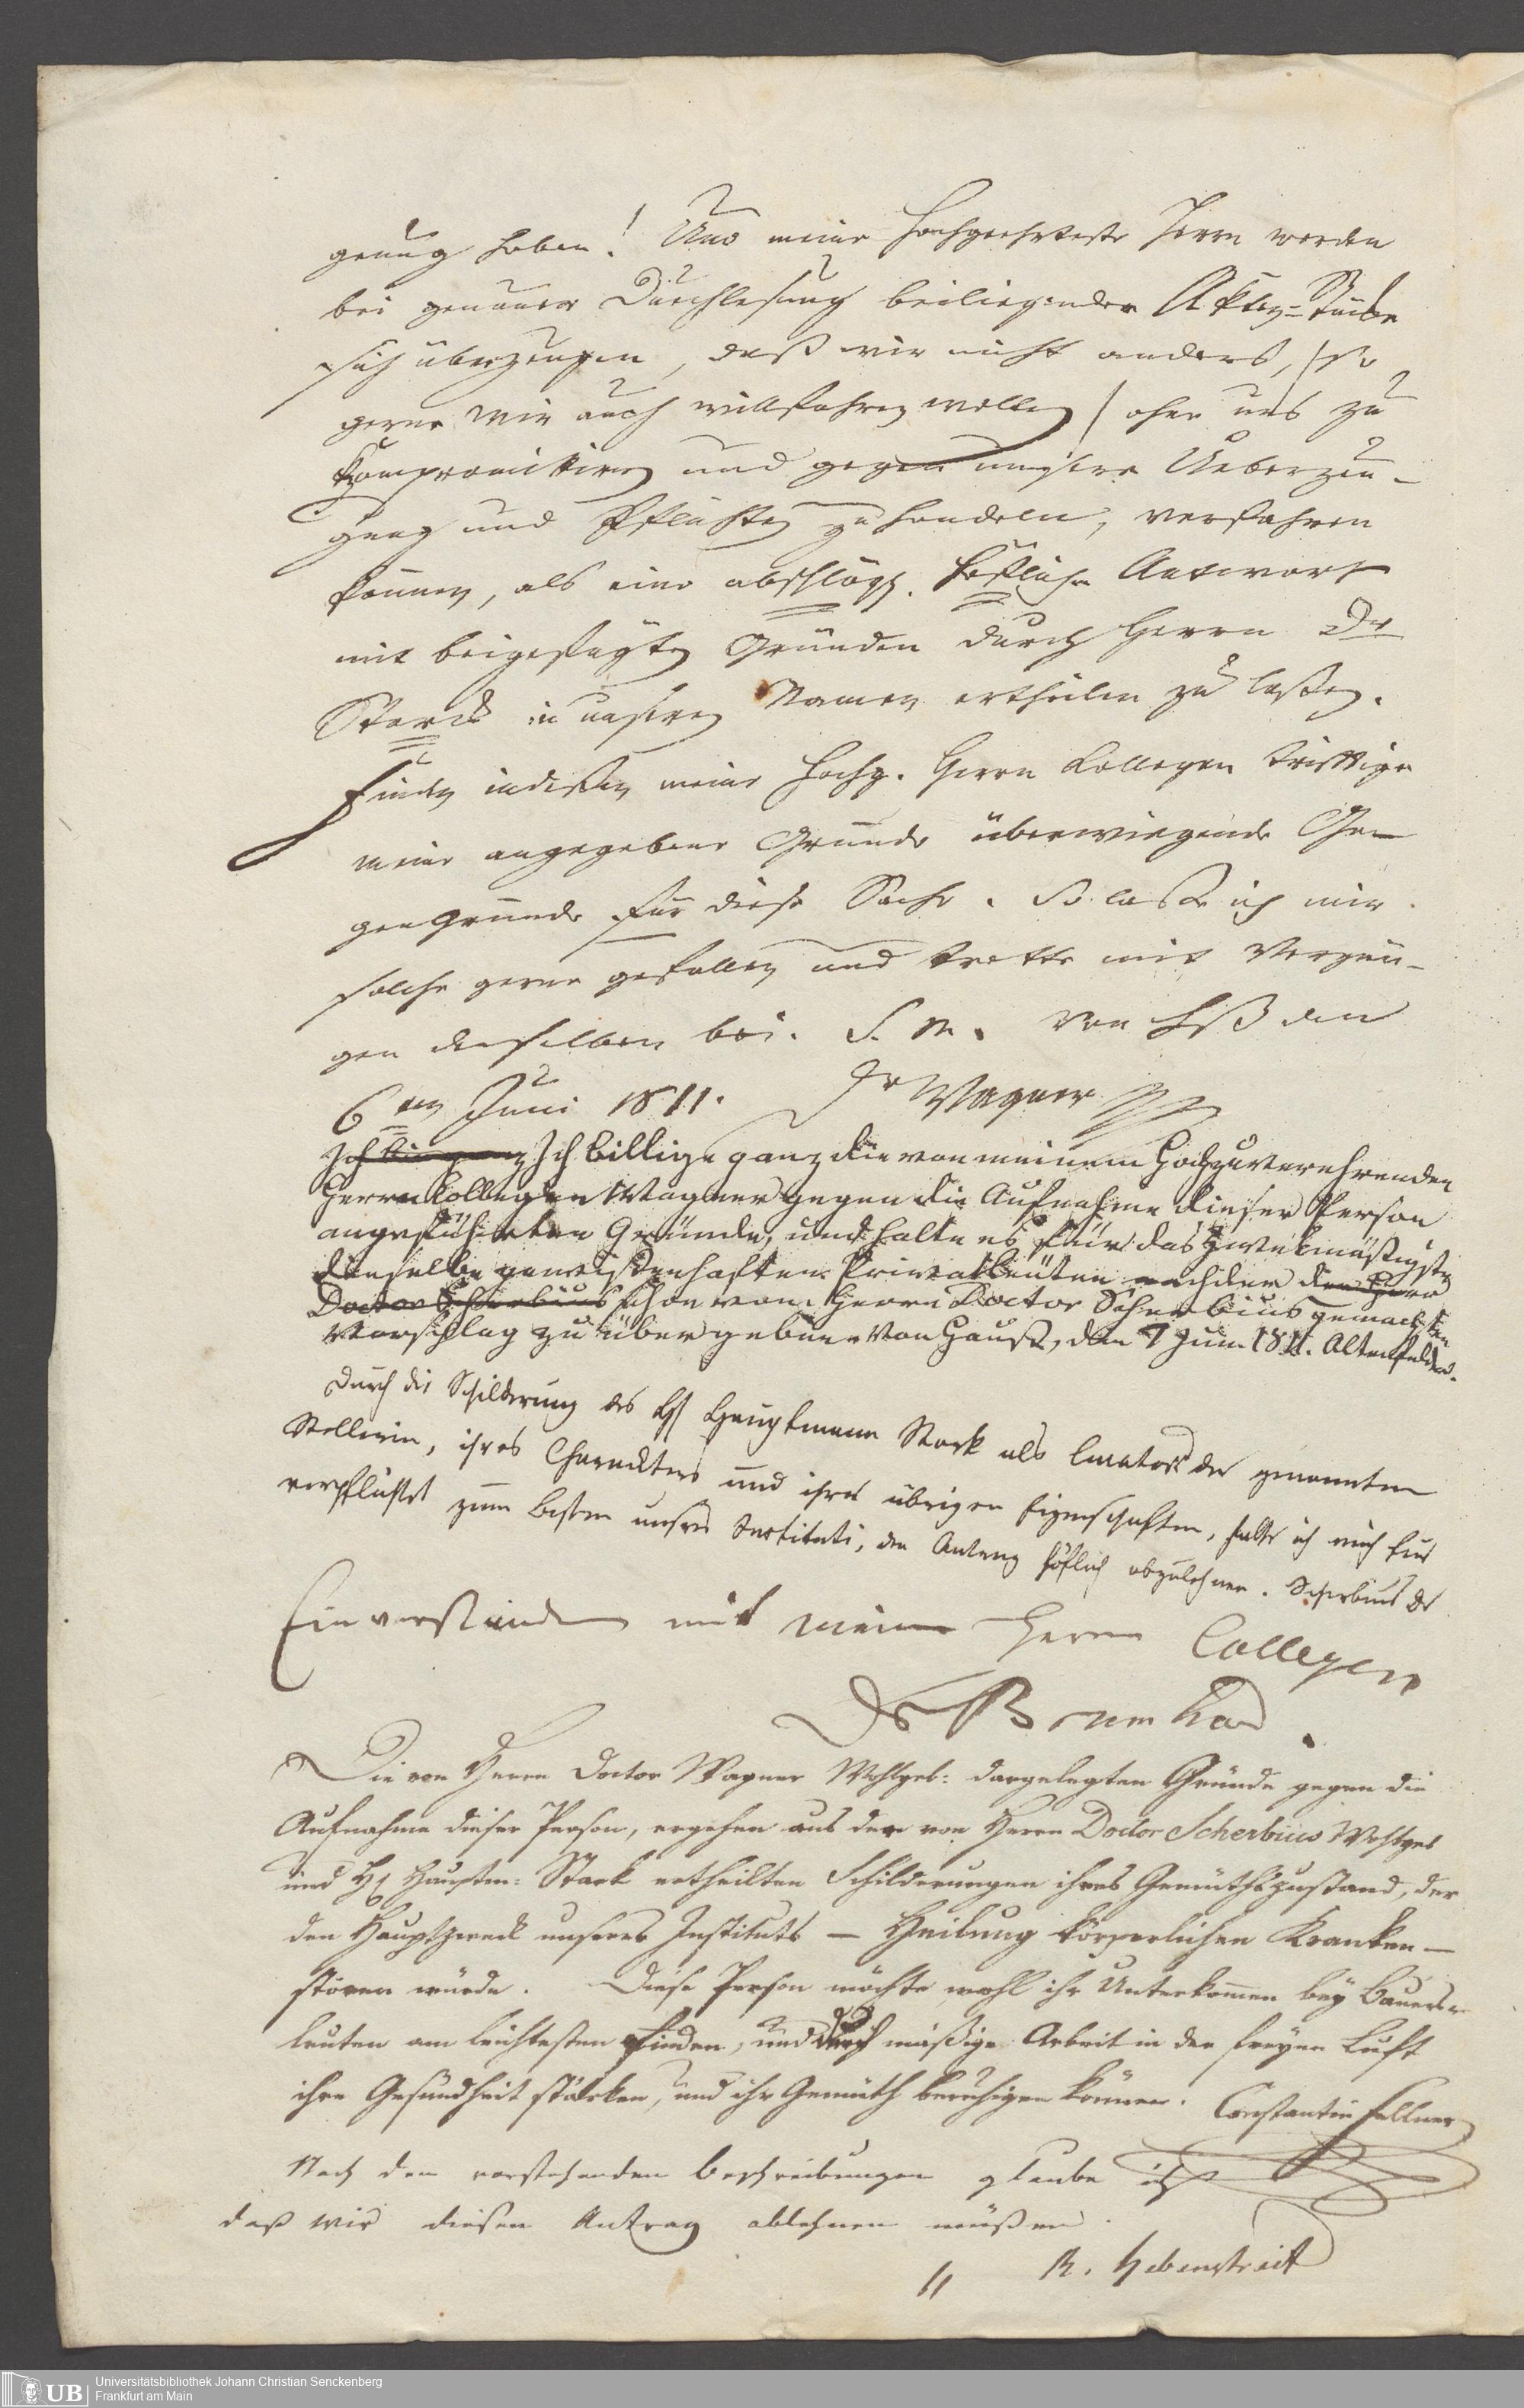 genug haben! Und meine hochgeehrteste Herrn werden
bei genauer Durchlesung beiliegender Akten-Stücke
sich überzeugen, daß wir nicht anders, /so
gerne wir auch willfahren wollen/ ohne uns zu
kompromittiren und gegen unsere Ueberzeu-
gung und Pflichten zu handeln, verfahren
können, als eine abschlägl. höfliche Antwort
mit beigefügten Gründen durch Herrn Dr
Starck in unsern Namen ertheilen zu laßen.
Finden indeßen meine hochg. Herrn Kollegen triftige
meine angegebene Gründe überwiegende Ge-
gengründe für diese Sache. So laße ich mir
solche gerne gefallen und trette mit Vergnü-
gen denselben bei. S. M. von Hß den
6ten Juni 1811. Dr Wagner
Ich billige ganz die von meinem Hochzuverehrenden
Herrn Collegen Wagner gegen die Aufnahme dieser Person
angeführten Gründe, und halte es für das Zwekmäßigste
dieselbe gewissenhaften Privatleuten nach dem den Herrn
Doctor Scherbius schon vom Herrn Doctor Scherbius gemachten
Vorschlag zu übergeben. Von Hauß, den 7 Juni 1811. Altenfelder.
Durch die Schilderung des H. Hauptmann Stark als Curators der genannten
Stellerin, ihres Charackters und ihrer übrigen Eigenschaften, halte ich mich
verpflichtet zum Besten unsres Instituts, den Antrag höflich abzulehnen. Scherbius Dr
Einverstanden mit meinen Herrn Collegen
Dr
Die von Herrn Doctor Wagner Wohlgeb: dargelegten Gründe gegen die
Aufnahme dieser Person, ergehen aus der von Herrn Doctor Scherbius Wohlgeb
und H. Hauptm: Stark ertheilten Schilderungen ihres Gemüthszustand, der
den Hauptzweck unseres Instituts – Heilung körperlichen Kranken –
stören würde. Diese Person möchte wohl ihr Unterkommen bey Bauers-
leuten am leichtesten finden, und durch mäßige Arbeit in der freyen Luft
ihre Gesundheit stärken, und ihr Gemüth beruhigen können. Constantin Fellner
Nach den vorstehenden Beschreibungen glaube ich
daß wir diesen Antrag ablehnen müßen.
R. Hebenstreit
UB Universitätsbibliothek Johann Christian Senckenberg
Frankfurt am Main